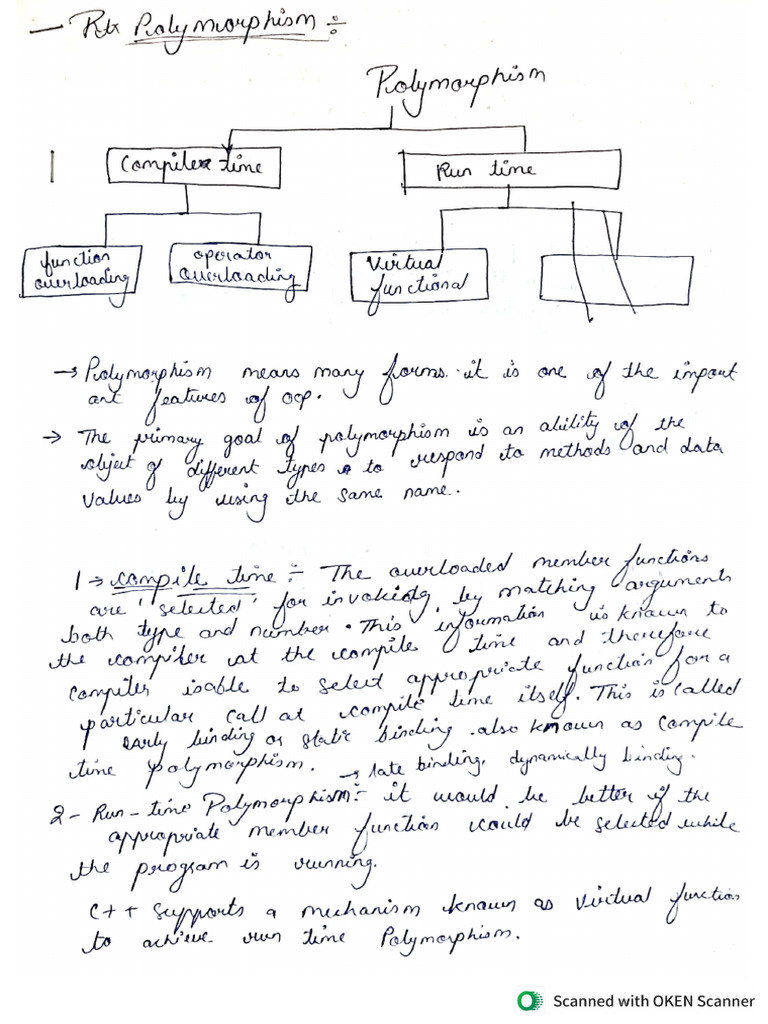 — Polymorphism ÷
Polymorphism
Compiler time
Run time
function
overloading
operator
overloading
Virtual
functional
→ Polymorphism means many forms. it is one of the import
ant features of oop.
→ The primary goal of polymorphism is an ability of the
object of different types to respond to methods and data
values by using the same name.
1 → compile time ÷ The overloaded member functions
are 'selected' for invoking by matching arguments
both type and number. This information is known to
the compiler at the compile time and therefore
compiler isable to select appropriate function for a
particular call at compile time itself. This is called
early binding or static binding. also known as compile
time polymorphism. → late binding, dynamically binding.
2 - Run - time Polymorphism ÷ it would be better if the
appropriate member function could be selected while
the program is running.
C++ supports a mechanism known as virtual function
to achieve run time Polymorphism.
Scanned with OKEN Scanner